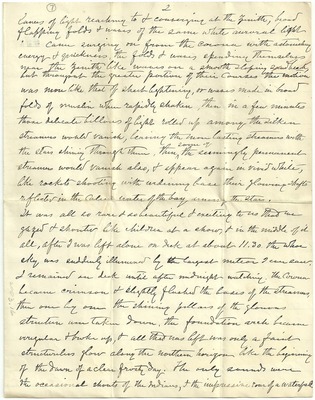 2
lances of light reaching to & converging at the zenith, broad
flapping folds & waves of the same white auroral light
came surging on from the corona with astonishing
energy & quickness, the folds & waves spending themselves
near the zenith like waves on a smooth sloping sandbeach
but throughout the greater portion of their courses the motion
was more like that of sheet lightning, or waves made in broad
folds of muslin when rapidly shaken then in a few minutes
those delicate billows of light rolled up among the silken
streamers would vanish, leaving the more lasting streamers with
the stars shining through them, then some of the seemingly permanent
streamers would vanish also, & appear again in vivid white,
like rockets shooting with widening base their glowing shafts
reflected in the calm water of the bay among the stars.
It was all so rare & so beautiful & exciting to us that we
gazed & shouted like children at a show, & in the middle of it
all, after I was left alone on deck at about 11.30. the whole
sky was suddenly illumined by the largest meteor I ever saw.
I remained on deck until after midnight watching. The Corona
became crimson & slightly flushed the bases of the streamers,
then one by one the shining pillars of the glorious
structure were taken down, the foundation arch became
irregular & broke up, & all that was left was only a faint
structureless glow along the northern horizon like the beginning
of the dawn of a clear frosty day. The only sounds were
the occasional shout of the Indians, & the impressive roar of a waterfall